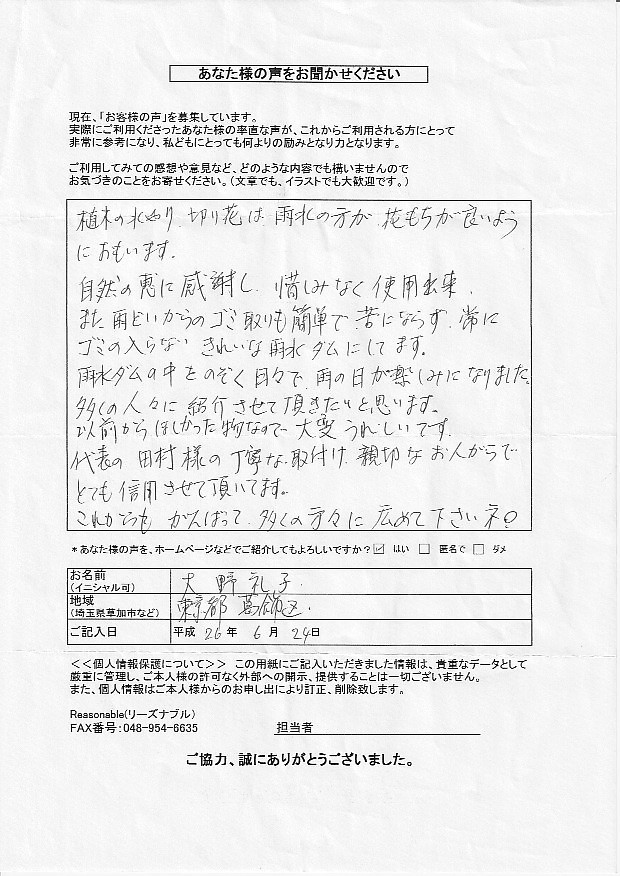 あなた様の声をお聞かせください
現在、「お客様の声」を募集しています。
実際にご利用くださったあなた様の率直な声が、これからご利用される方にとって
非常に参考になり、私どもにとっても何よりの励みとなり力となります。
ご利用してみての感想や意見など、どのような内容でも構いませんので
お気づきのことをお寄せください。(文章でも、イラストでも大歓迎です。)
植木の水やり、切り花は、雨水の方が、花もちが良いよう
におもいます。
自然の恵に感謝し、惜しみなく使用出来、
また雨どいからのゴミ取りも簡単で、苦にならず、常に
ゴミの入らない きれいな雨水ダムにしてます。
雨水ダムの中をのぞく日々で、雨の日が楽しみになりました。
多くの人々に紹介させて頂きたいと思います。
以前からほしかった物なので大変うれしいです。
代表の田村様の丁寧な、取付け、親切なお人がらで
とても信用させて頂いてます。
これからも がんばって、多くの方々に広めて下さいネ!
*あなた様の声を、ホームページなどでご紹介してもよろしいですか? ☑ はい □ 匿名で □ ダメ
お名前
(イニシャル可)
大野礼子
地域
(埼玉県草加市など)
東京都 葛飾区.
ご記入日 平成 26 年 6 月 24日
<<個人情報保護について>> この用紙にご記入いただきました情報は、貴重なデータとして
厳重に管理し、ご本人様の許可なく外部への開示、提供することは一切ございません。
また、個人情報はご本人様からのお申し出により訂正、削除致します。
Reasonable(リーズナブル)
FAX番号:048-954-6635 担当者
ご協力、誠にありがとうございました。